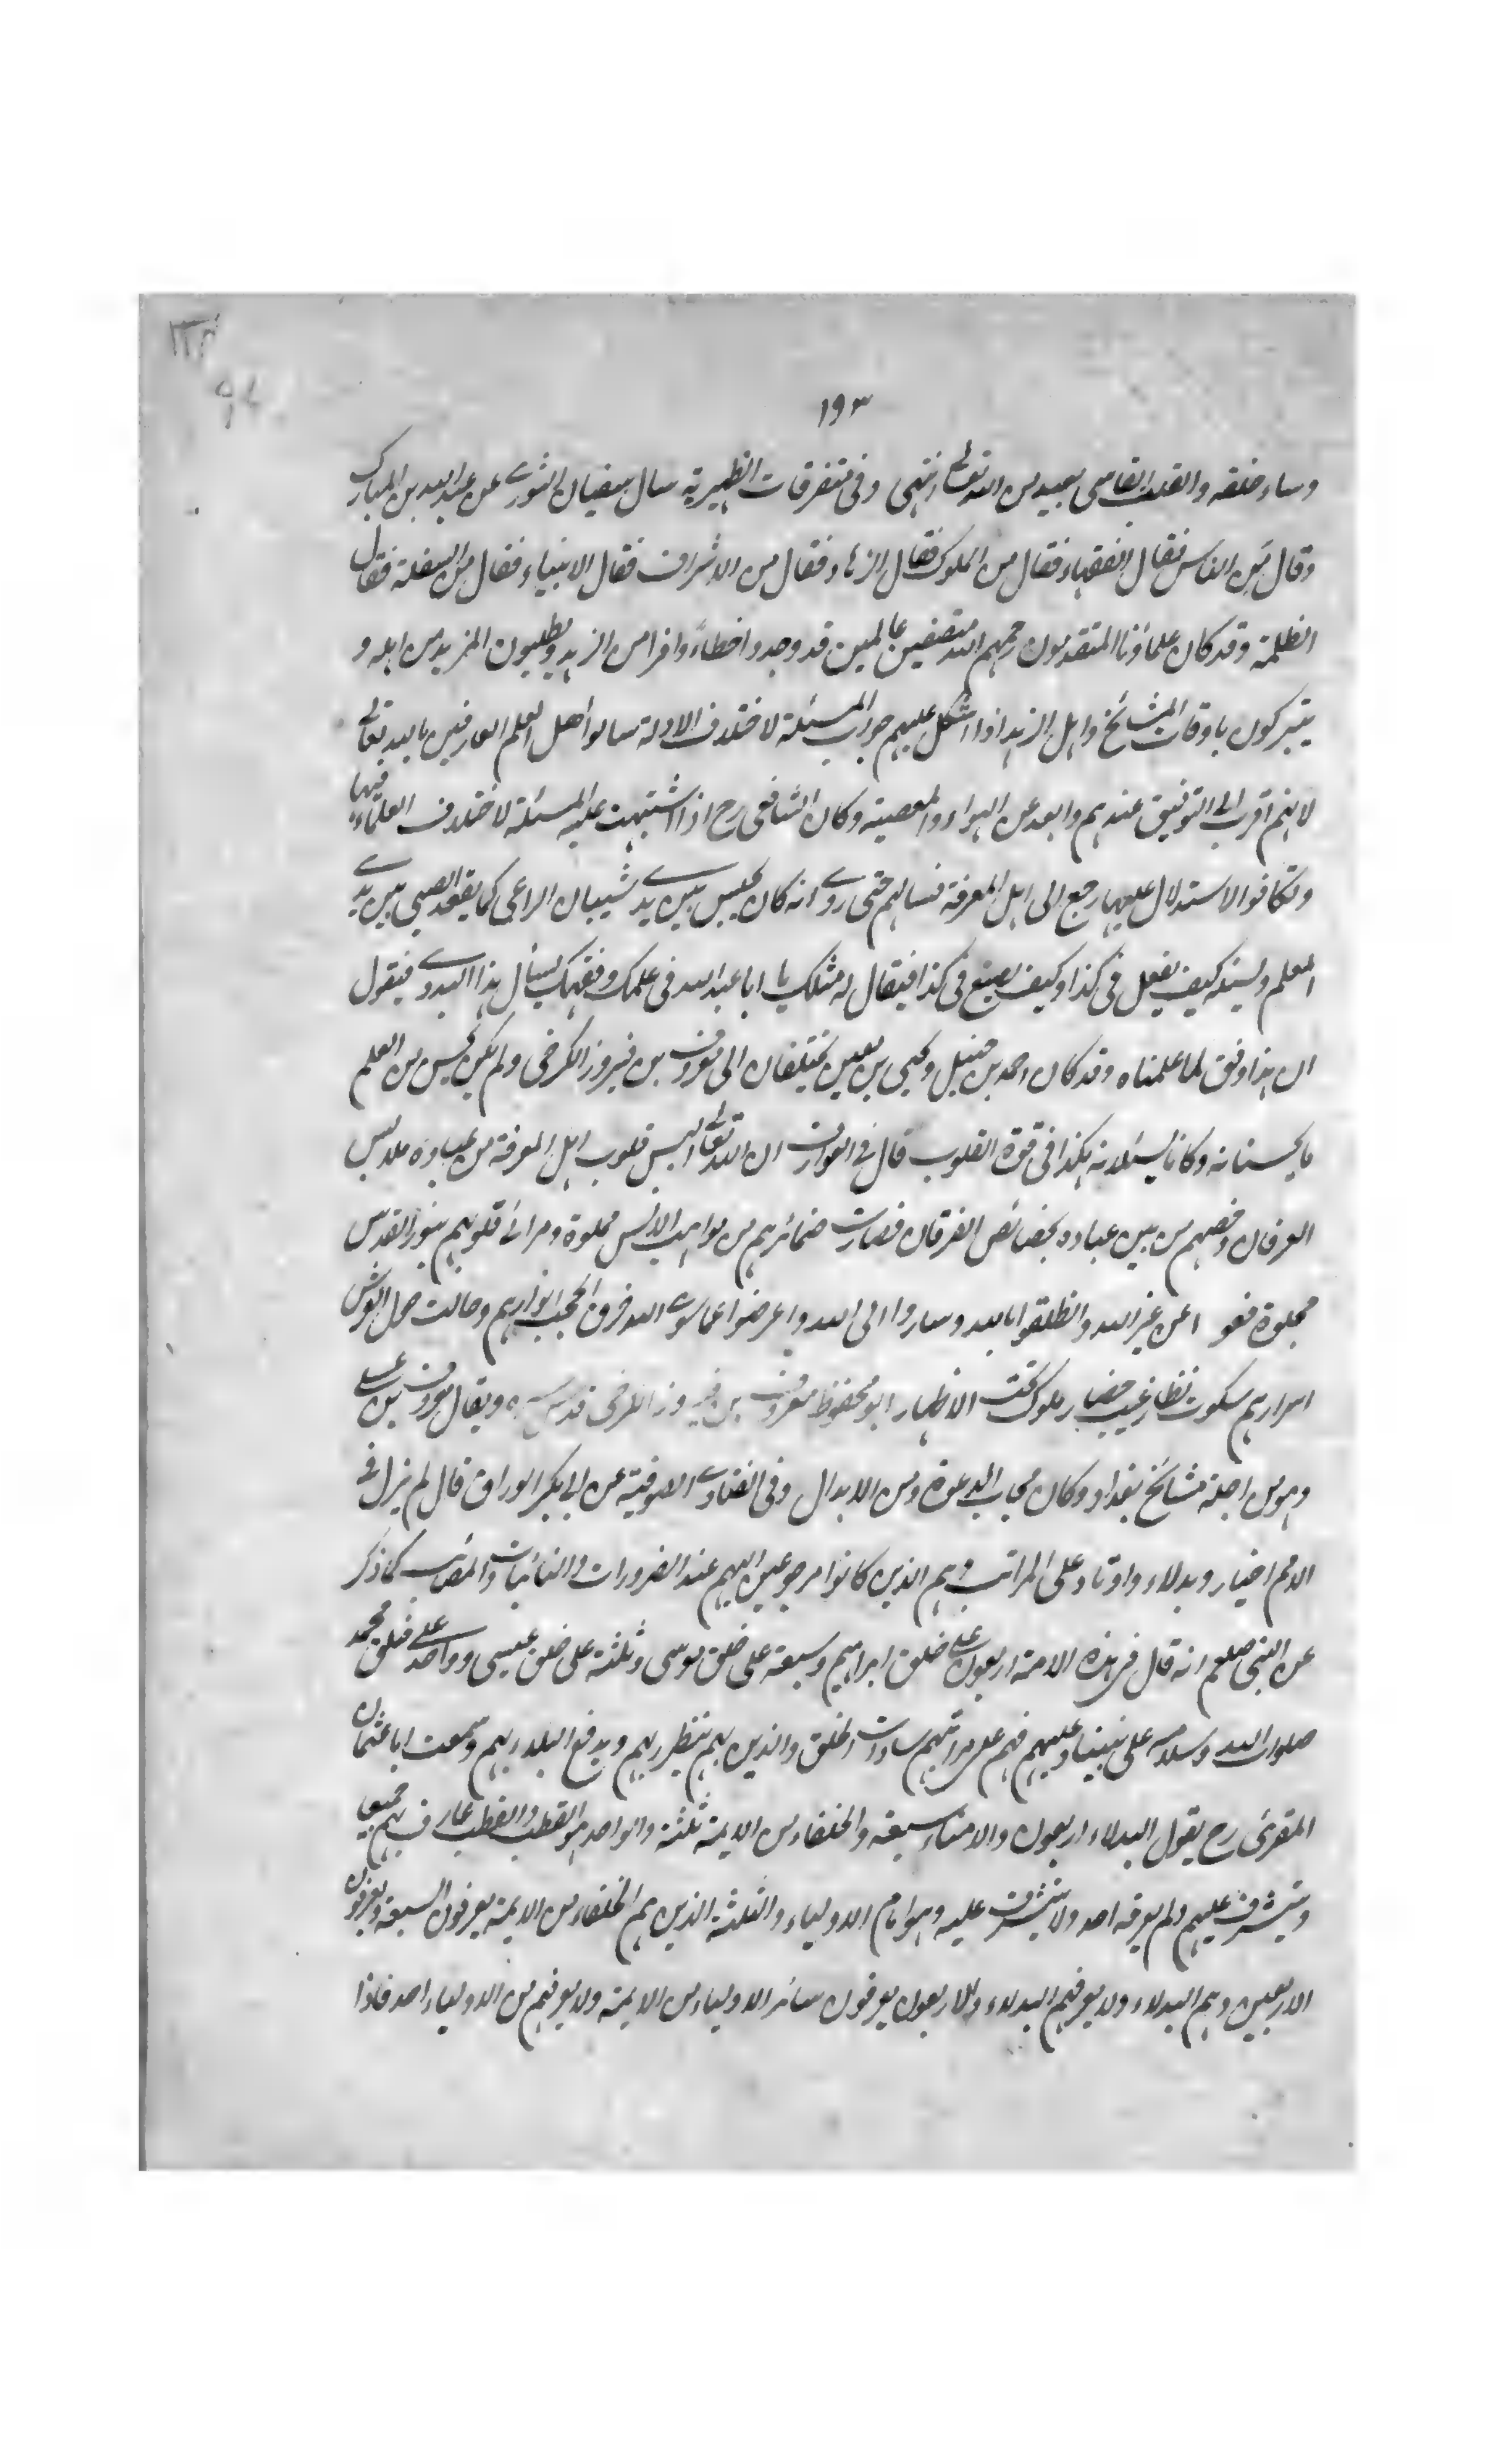 ١٩٣
وساء خلقه والقلب القاسى بعيد من الله تعالى انتهى وفى متفرقات الظهيرية سال سفيان الثورى عن عبد الله بن المبارك
وقال من الناس فقال الفقهاء فقال من الملوك فقال الزهاد فقال من الاشراف فقال الانبياء فقال من السفلة فقال
الظلمة وقد كان علماؤنا المتقدمون رحمهم الله متصفين عالمين قد وجدوا خطاءً وافرا من الزهد ويطلبون المزيد من اهله و
يتبركون باوقات المشائخ واهل الزهد اذا اشكل عليهم جواب المسئلة لاختلاف الادلة سالوا أهل العلم العارفين بالله تعالى
لانهم اقرب الى التوفيق عندهم وابعد عن الهواء والمعصية وكان الشافعى رح اذا اشتبهت عليه المسئلة لاختلاف العلماء فيها
وتكافوا الاستدلال عليها رجع الى اهل المعرفة فسالهم حتى روى انه كان يجلس بين يدى شيبان الراعى كما يقعد الصبى بين يدى
المعلم ويسئله كيف يفعل فى كذا وكيف يصنع فى كذا فيقال له مثلك يا ابا عبد الله فى علمك وفقهك يسأل هذا البدوى فيقول
ان هذا وفق لما علمناه وقد كان احمد بن حنبل ويحيى بن معين يختلفان الى معروف بن فيروز الكرخى ولم يكن يحسن من العلم
ما يحسنانه وكانا يسئلانه هكذا فى قوة القلوب قال فى العوارف ان الله تعالى البس قلوب اهل المعرفة من عباده ملابس
العرفان وخصهم من بين عباده بخصائص الفرقان فصارت ضمائرهم من مواهب الانس مملوة ومرائى قلوبهم بنور القدس
مجلوة فغو ا عن غير الله وانطلقوا بالله وساروا الى الله واعرضوا عما سوى الله خرق الحجب انوارهم وجالت حول العرش
اسرارهم سكوت نظار غيب حضار ملوك تحت الاطمار ابو محفوظ معروف بن فيروز الكرخى قدس سره ويقال معروف بن على
وهو من اجلة مشائخ بغداد وكان مجاب الدعوة ومن الابدال وفى الفتاوى الصوفية عن ابى بكر الوراق قال لم يزل فى
الامم اخيار وبدلاء واوتاد على المراتب وهم الذين كانوا مرجوعين اليهم عند الضرورات والنائبات والمصائب كما ذكر
عن النبى صلعم انه قال فى هذه الامة اربعون على خلق ابراهيم وسبعة على خلق موسى وثلثة على خلق عيسى وواحد على خلق محمد
صلوات الله وسلامه على نبينا وعليهم فهم على مراتبهم سادات الخلق والذين بهم ينتظر بهم ويدفع البلاء بهم وسمعت ابا عثمان
المقرئ رح يقول البدلاء اربعون والامناء سبعة والخلفاء من الايمة ثلثة والواحد هو القطب والقطب عارف بهم جميعا
ويشرف عليهم ولم يعرفه احد ولا يتشرف عليه وهو امام الاولياء والثلثة الذين هم الخلفاء من الايمة يعرفون السبعة ويعرفون
الاربعين وهم البدلاء ولا يعرفهم البدلاء والاربعون يعرفون سائر الاولياء من الايمة ولا يعرفهم من الاولياء احد فاذا